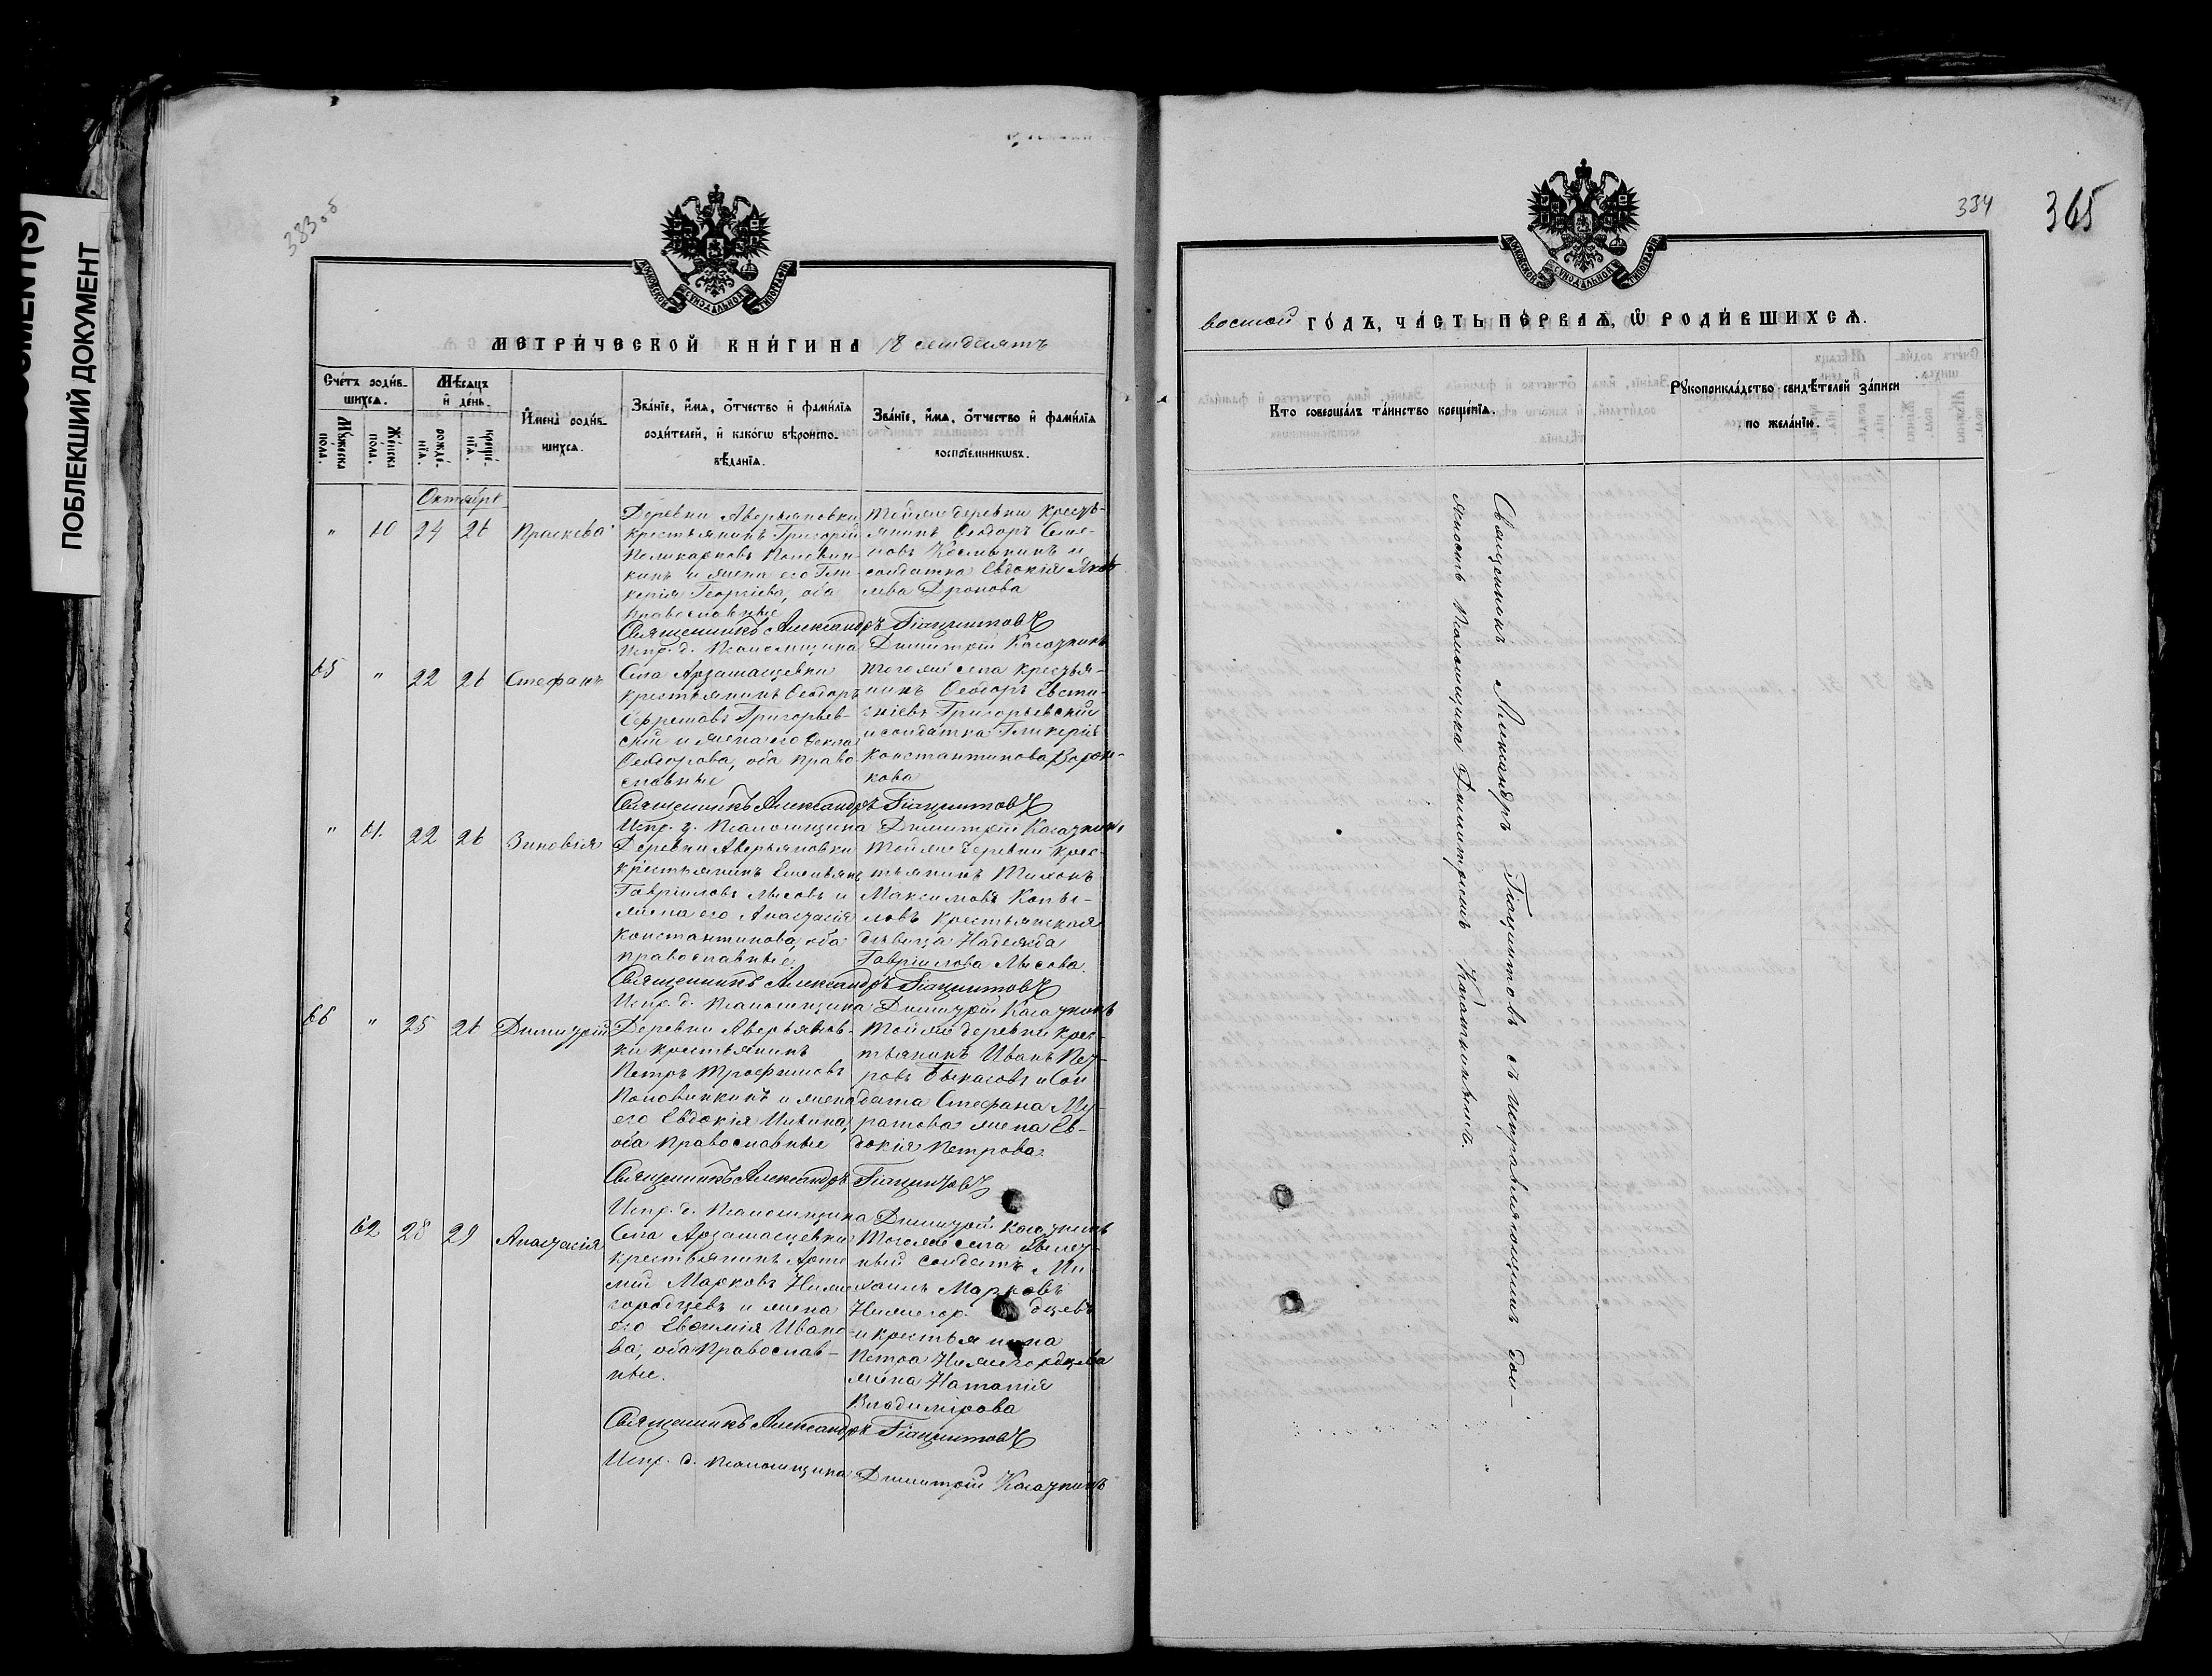 DOCUMENT(S)
ПОБЛЕКШИЙ ДОКУМЕНТ
383об
МЕТРИ́ЧЕСКОЙ КНИ́ГИ НА 18 семьдесятъ
Сче́тъ роди́в-
шихсѧ.
Мꙋ́жеска пола.
Же́нска пола.
Мѣ́сѧцъ
и҆ де́нь.
рожде́-
нїѧ.
креще́-
нїѧ.
И҆мена̀ роди́в-
шихсѧ.
Зва́нїе, и҆́мѧ, ѻ҆́тчество и҆ фами́лїѧ
роди́телей, и҆ како́гѡ вѣроиспо-
вѣ́данїѧ.
Зва́нїе, и҆́мѧ, ѻ҆́тчество и҆ фами́лїѧ
воспрїе́мникѡвъ.
Октября
" 60 24 26 Праскева
Деревни Аверьяновки
крестьянинъ Григорій
Поликарповъ Половин-
кинъ и жена его Гли-
керія Георгіева, оба
православные
Тойже деревни кресть-
янинъ Ѳеодоръ Семе-
новъ Косынкинъ и
солдатка Евдокія Яков-
лева Дронова
Священникъ Александръ Гіацинтовъ
Испр. д. Псаломщика Димитрій Касаткинъ
65 " 22 26 Стефанъ
Села Арзамасцевки
крестьянинъ Ѳеодоръ
Ефремовъ Григорьев-
скій и жена его Ѳекла
Ѳеодорова, оба право-
славные
Тогоже села крестья-
нинъ Ѳеодоръ Евсти-
гніевъ Григорьевскій
и солдатка Гликерія
Константинова Ворон-
кова
Священникъ Александръ Гіацинтовъ
Испр. д. Псаломщика Димитрій Касаткинъ
" 61. 22 26 Зиновія
Деревни Аверьяновки
крестьянинъ Емельянъ
Гавріиловъ Лысовъ и
жена его Анастасія
Константинова, оба
православные.
Тойже деревни крес-
тьянинъ Тихонъ
Максимовъ Копы-
ловъ крестьянская
дѣвица Надежда
Гавріилова Лысова.
Священникъ Александръ Гіацинтовъ
Испр. д. Псаломщика Димитрій Касаткинъ
66 " 25 26 Димитрій
Деревни Аверьянов-
ки крестьянинъ
Петръ Трофимовъ
Половинкинъ и жена
его Евдокія Ильина,
оба православные
Тойже деревни крес-
тьянинъ Иванъ Пет-
ровъ и Сол
дата Стефана Му-
ратова жена Ев-
докія Петрова.
Священникъ Александръ Гіацинтовъ
Испр. д. Псаломщика Димитрій Касаткинъ
62 28 29 Анастасія
Села Арзамасцевки
крестьянинъ Арте
мій Марковъ Ниже
городцевъ и жена
его Евѳимія Ивано-
ва, оба Православ-
ные.
Тогоже села билет-
ный солдатъ Ми
хаилъ Марковъ
Нижегор. дцевъ
и крестьянина
Петра Нижегородцева
жена Наталія
Владимірова
Священникъ Александръ Гіацинтовъ
Испр. д. Псаломщика Димитрій Касаткинъ
384
365
восмой ГО́ДЪ, ЧА́СТЬ ПЕ́РВАѦ, Ѽ РОДИ́ВШИХСѦ.
Кто соверша́лъ та́инство креще́нїѧ.
Рꙋкоприкла́дство свидѣ́телей за́писи
по жела́нїю.
Священникъ Александръ Гіацинтовъ съ исправляющимъ дол-
жность Псаломщика Димитріемъ Касаткинымъ.